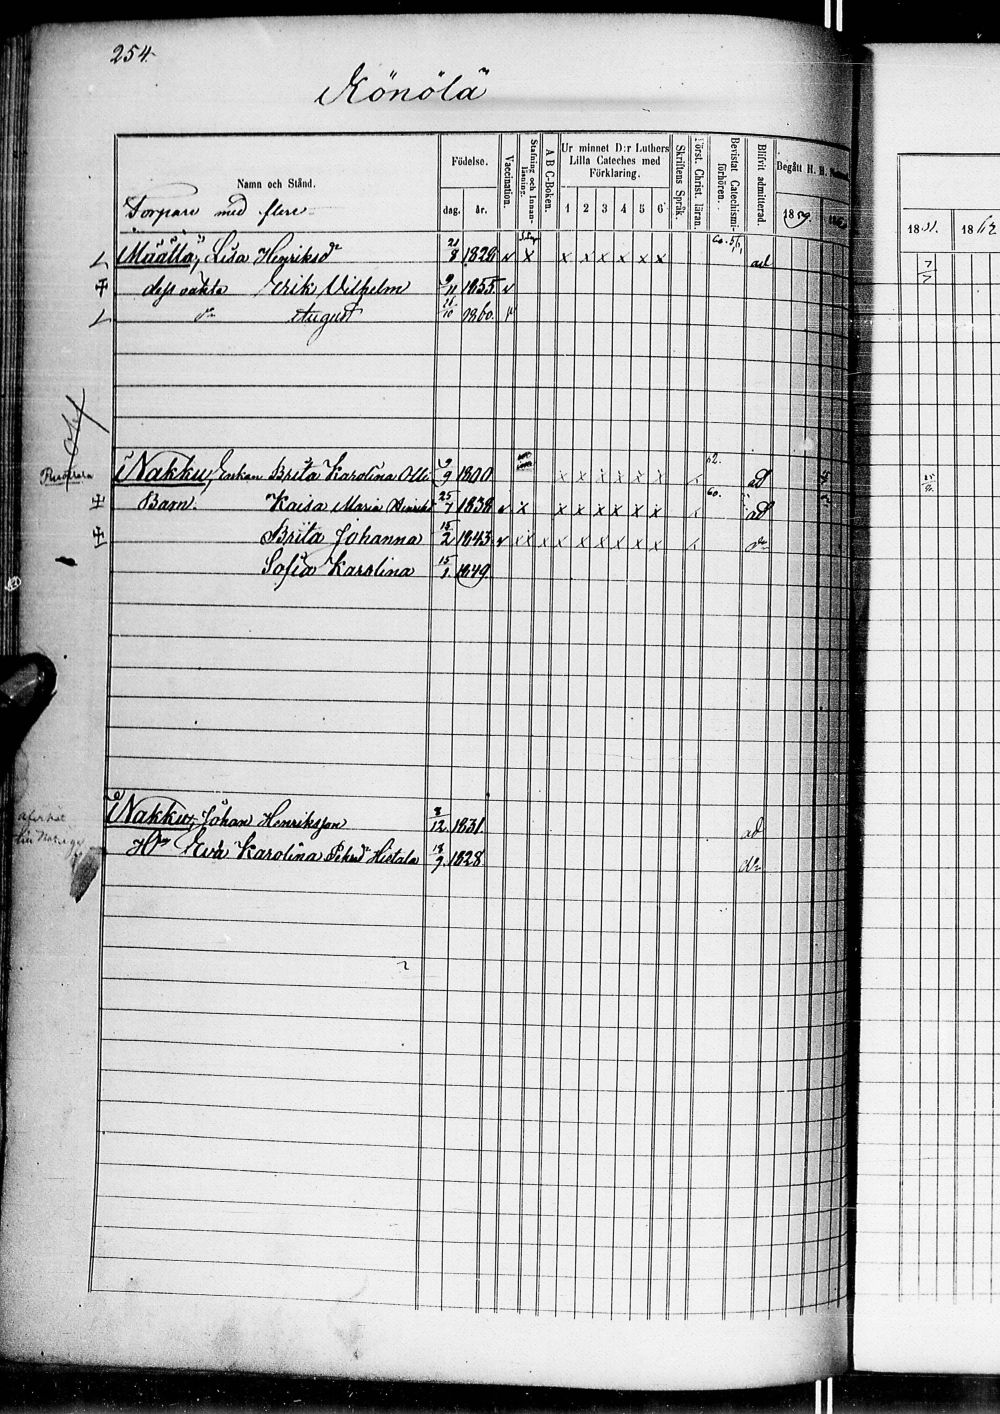 254.
Könölä
Namn och Stånd.
Födelse.
dag.
år.
Vaccination.
Stafning och Innanläsning.
A B C-Boken.
Ur minnet D:r Luthers Lilla Cateches med Förklaring.
1 2 3 4 5 6
Skriftens Språk.
Först. Christ. läran.
Bevistat Catechismiförhören.
Blifvit admitterad.
Begått H. H.
1859.
18
Torpare med flere
Määttä, Lisa Henriksdr 21/8 1829 v x x x x x x x ad
Erik Vilhelm 9/11 1855. v
do August 11/10 1860.
Nakku, Enkan Brita Karolina Olli 9/9 1800 x x x x x x x ad
Barn. Kaisa Maria Henriksd 25/7 1838 v x x x x x x x x ad
Brita Johanna 15/2 1843 v x x x x x x x x x do
Sofia Karolina 15/1. 1849.
Nakku, Johan Henriksson 8/12 1831. ad
Hu Eva Karolina Pehrsdr Hietala 18/9 1828. do